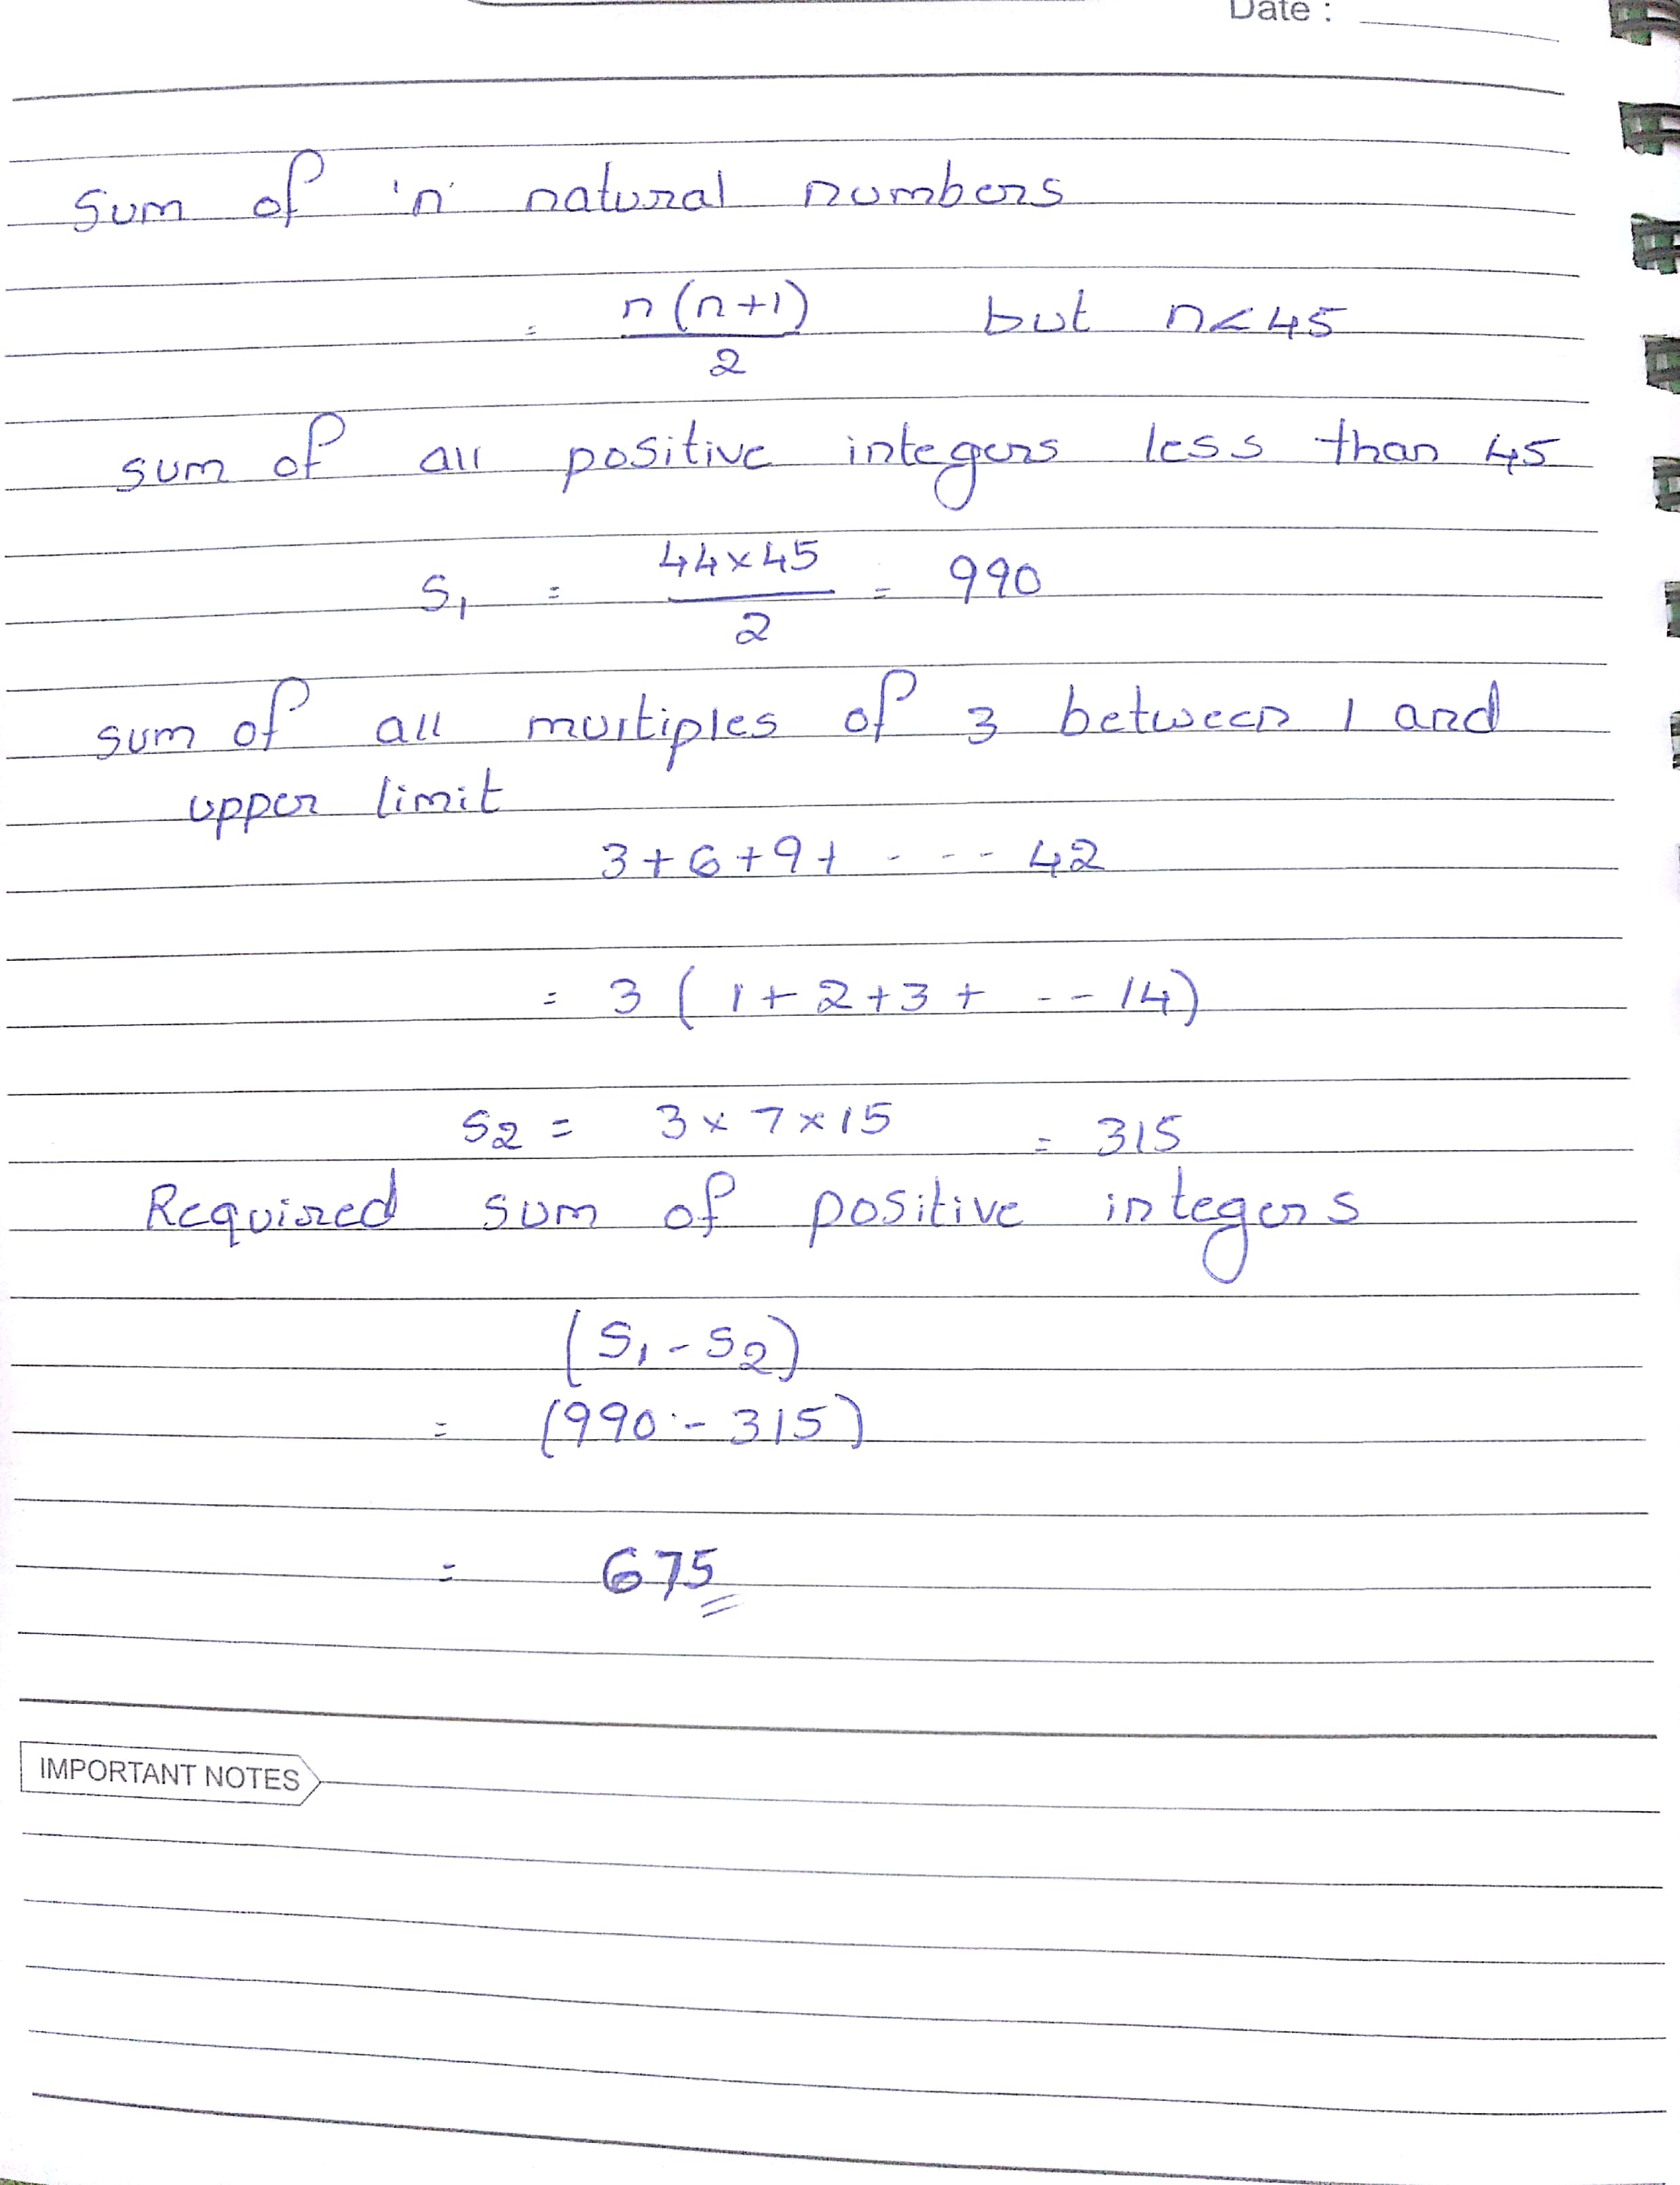 Date :
sum of 'n' natural numbers
= n(n+1)/2 but n<45
sum of all positive integers less than 45
S₁ = 44×45/2 = 990
sum of all multiples of 3 between 1 and
upper limit
3+6+9+ - - - 42
= 3 ( 1+2+3+ - - 14)
S2 = 3×7×15 = 315
Required sum of positive integers
(S₁-S2)
= (990 - 315)
= 675
IMPORTANT NOTES